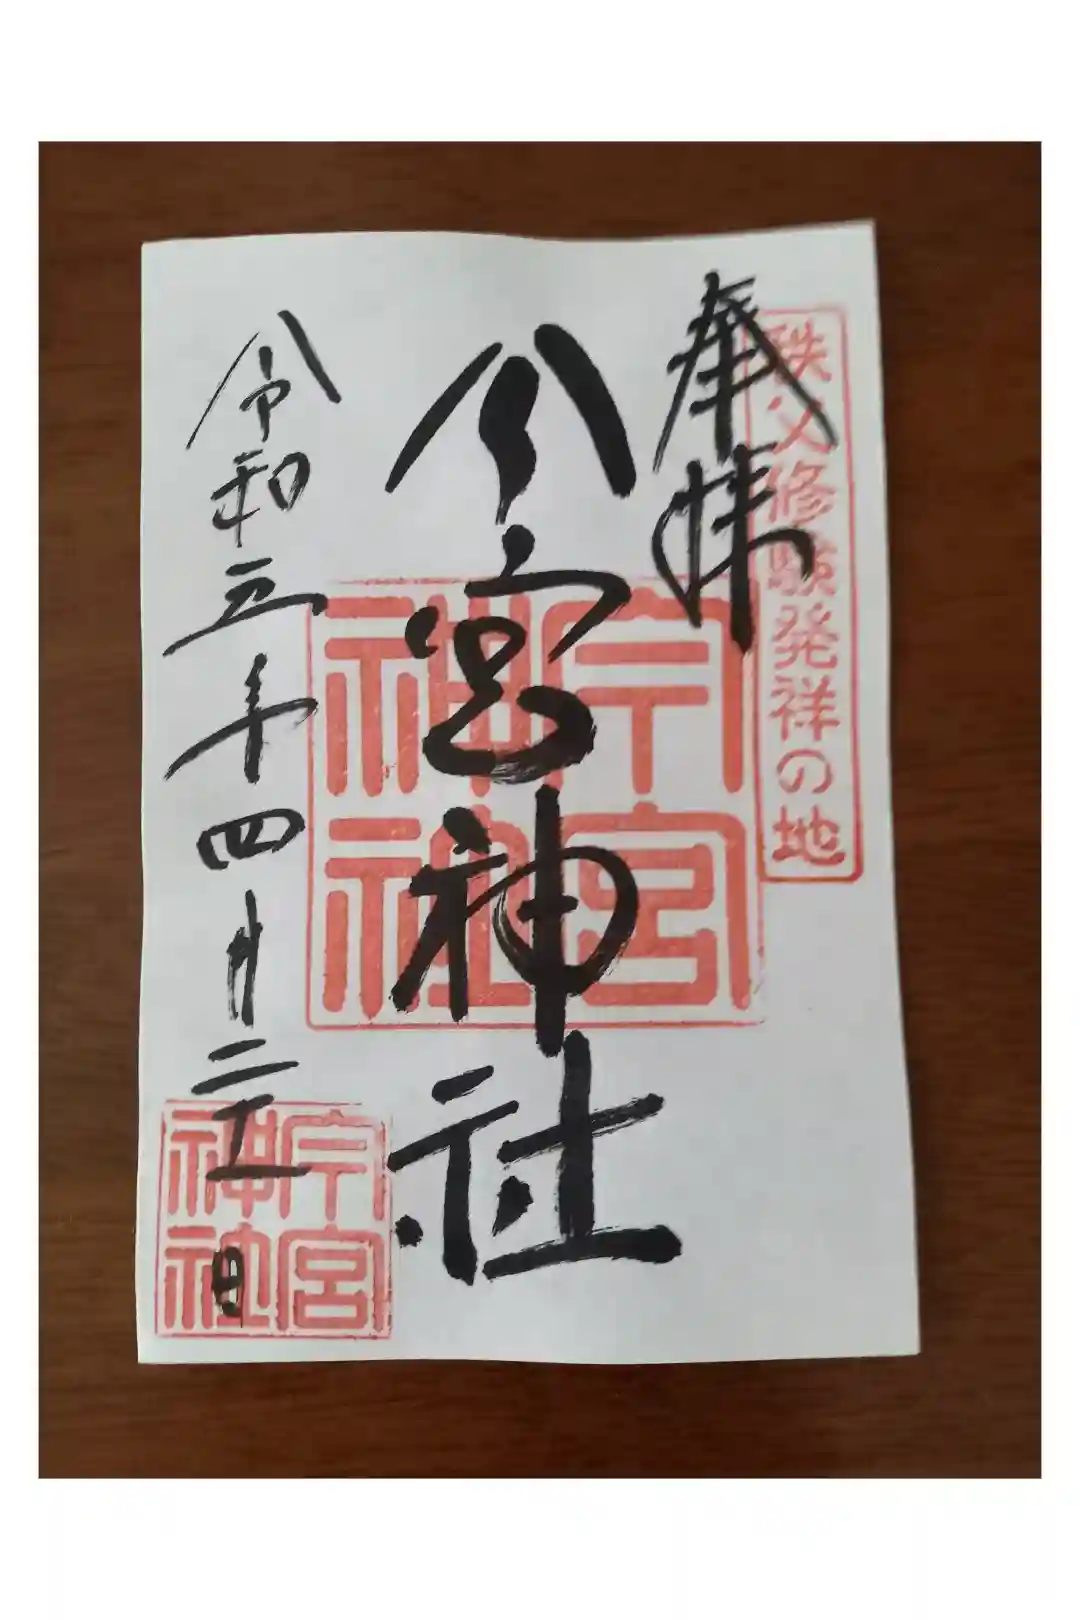 秩父修験発祥の地
奉拝
今宮神社
今宮神社
令和三年四月二十一日
今宮神社